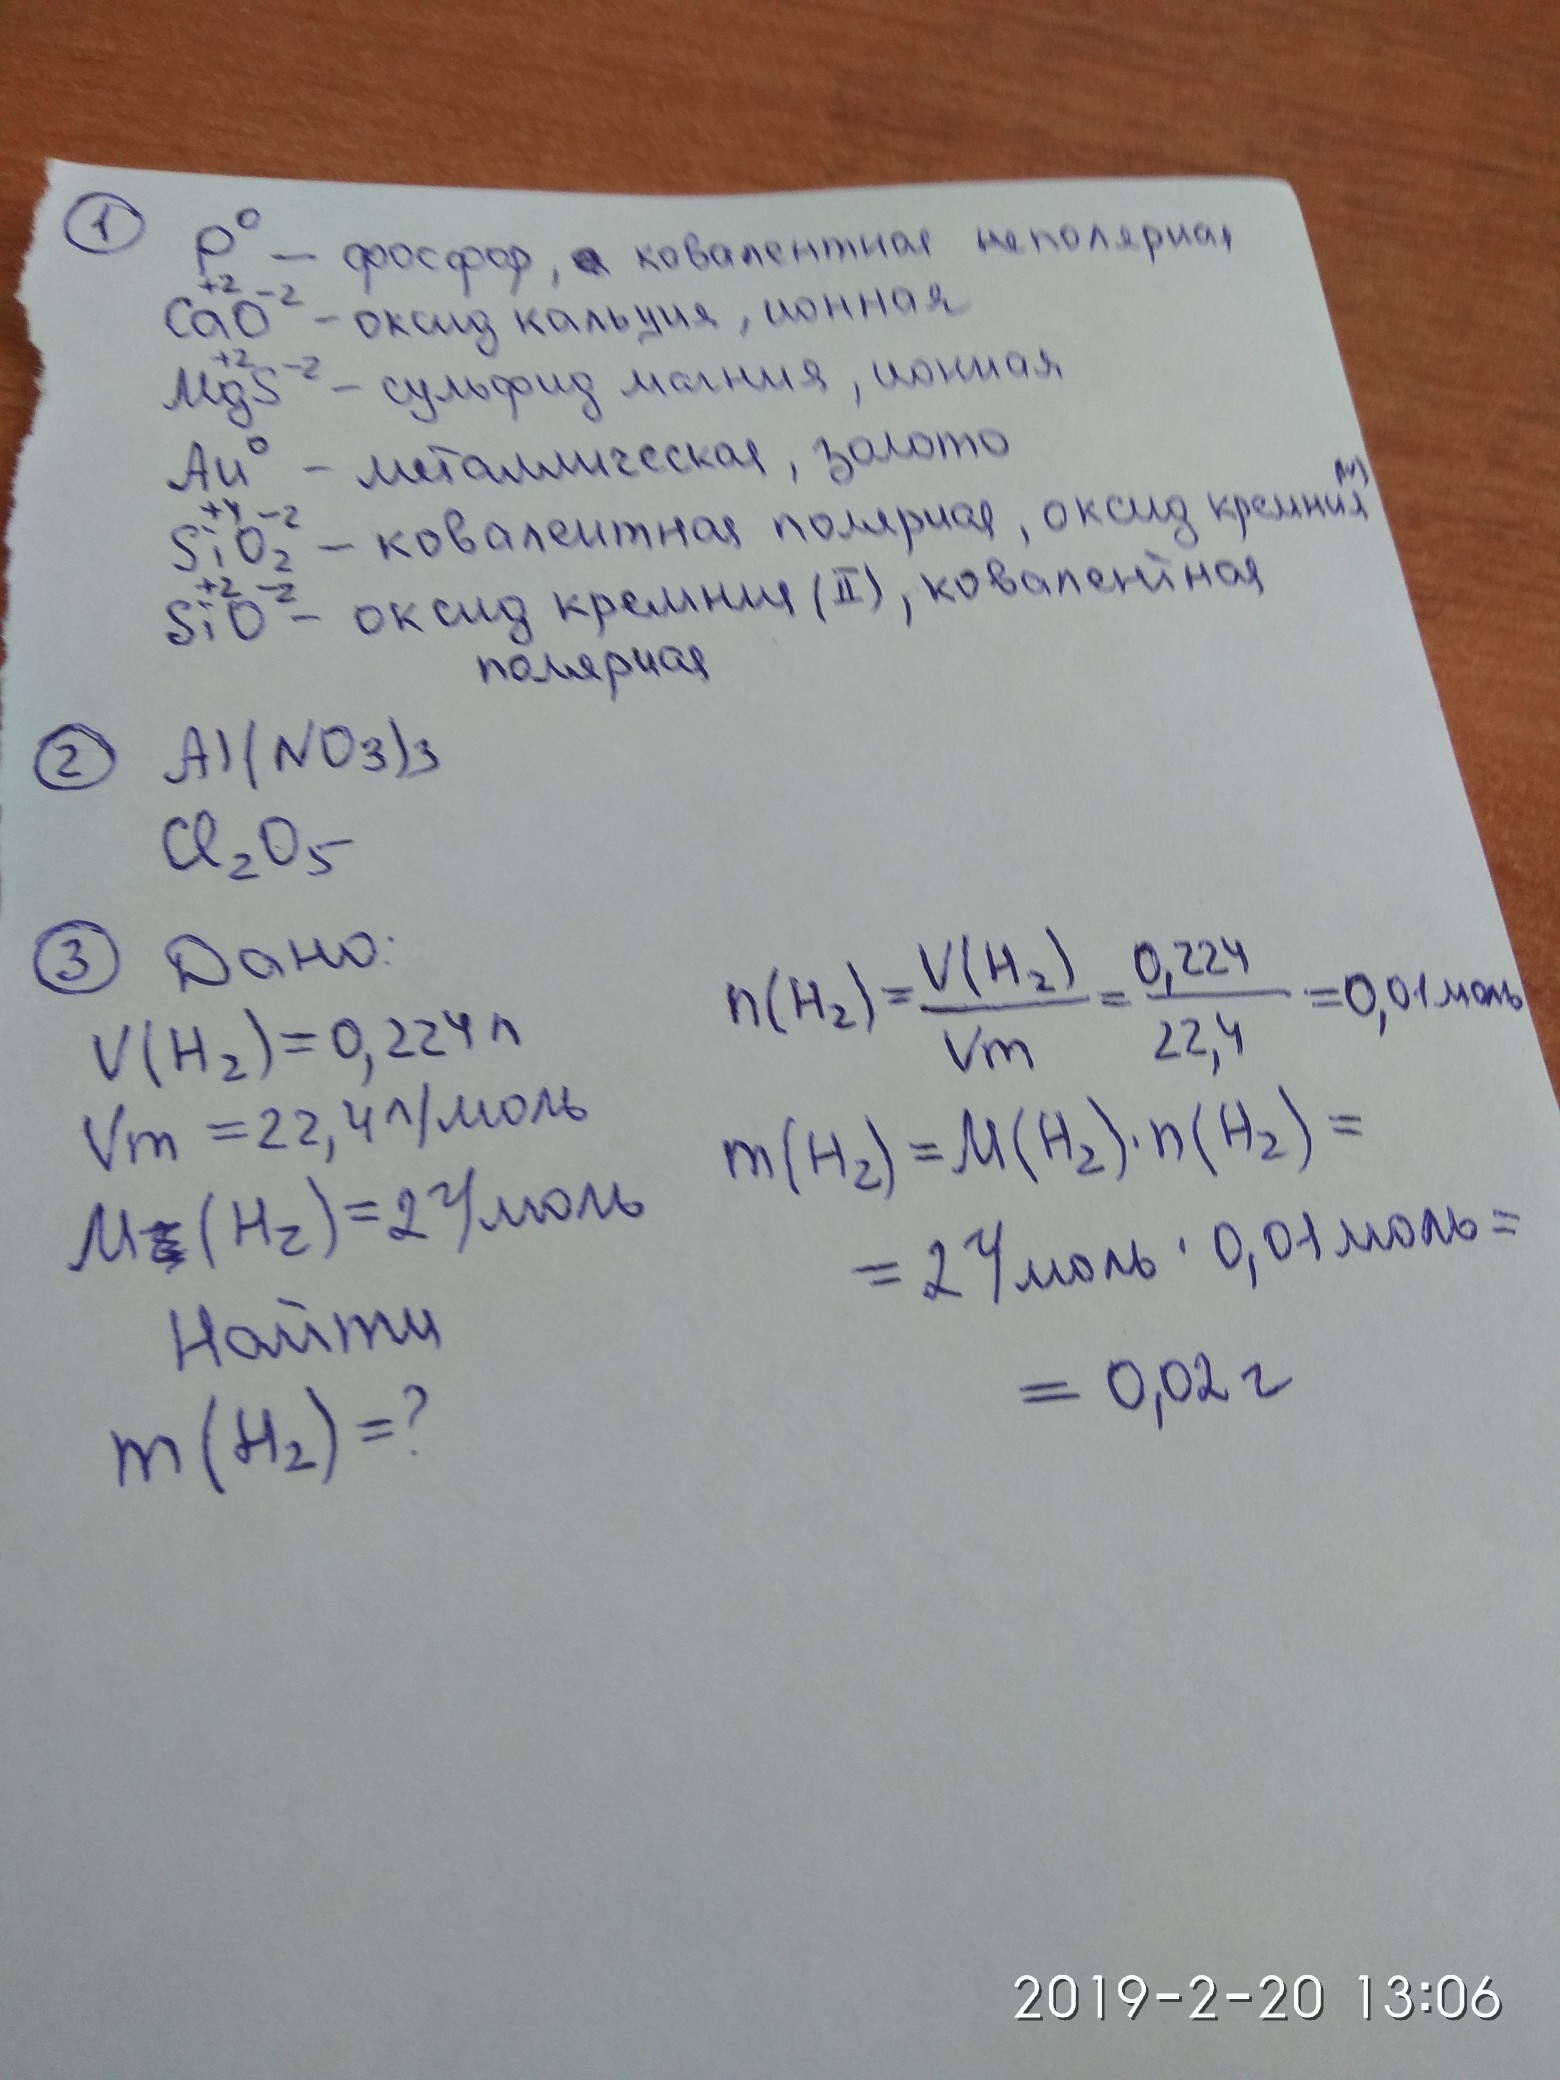 1 P⁰ – фосфор, ковалентная неполярная
Ca⁺²O⁻² – оксид кальция, ионная
Mg⁺²S⁻² – сульфид магния, ионная
Au⁰ – металлическая, золото
Si⁺⁴O₂⁻² – ковалентная полярная, оксид кремния
Si⁺²O⁻² – оксид кремния (II), ковалентная
полярная
2 Al(NO3)3
Cl₂O₅
3 Дано:
V(H₂)=0,224л
Vm =22,4л/моль
M(H₂)=2г/моль
Найти
m(H₂)=?
n(H₂)=V(H₂)/Vm=0,224/22,4=0,01моль
m(H₂)=M(H₂)·n(H₂)=
=2г/моль·0,01моль=
=0,02г
2019-2-20 13:06